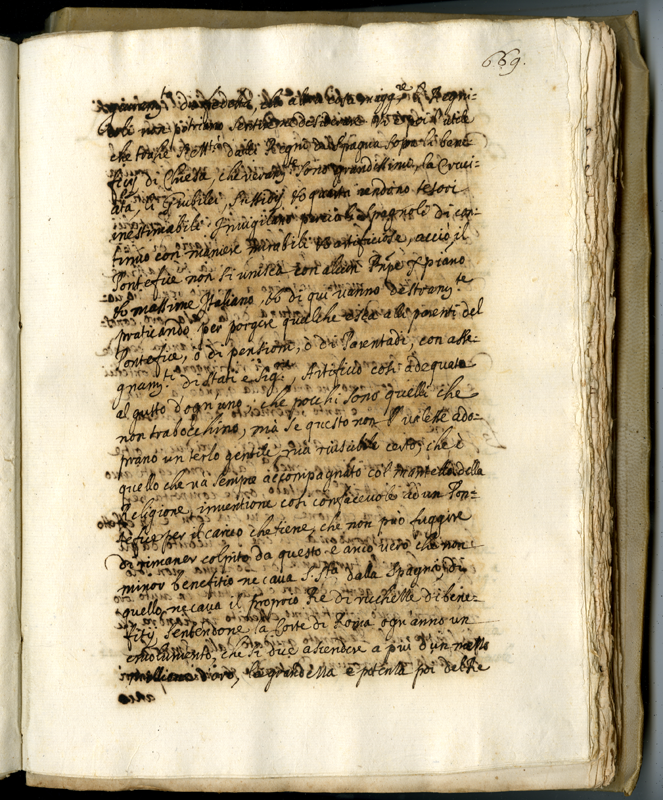 669.
di che altra cosa magg.re
non potriano sentire
che trahe S. M.tà dalli Regni di Spagna sopra li bene-
ficij di Chiesa, che sono grandissimi, la Cruci-
ata, li Giubilei, Sussidij, et questa rendono tesori
inestimabili. Invigilano Spagnoli di con-
tinuo con maniere mirabili et artificiose, acciò il
Pontefice non si unisca con alcun Prn.pe
et massime Italiano, et di qui vanno destram.te
praticando per porgere qualche esca alli parenti del
Pontefice, ò di pensioni, ò di Parentadi, con asse-
gnam.ti di stati e Sig.rie, Artificio così adequato
al gusto d'ogn'uno, che pochi sono quelli che
non trabocchino, mà se questo non l'valesse ado-
prano un terzo gentile, mà riuscibile cosa, che è
quello che và sempre accompagnato col della
Religione, inventione così confacevole ad un Pon-
tefice per il carico che tiene, che non può fuggire
di rimaner colpito da questo. è anco vero che non
minor benefitio ne cava S. S.tà dalla Spagna, di
quello ne cava il proprio Rè di ricchezze di bene-
fitij, sentendone la Corte di Roma ogn'anno un
emolumento, che si dice ascendere a più d'un mezzo
millione d'oro, la grandezza e potenza poi dell Rè